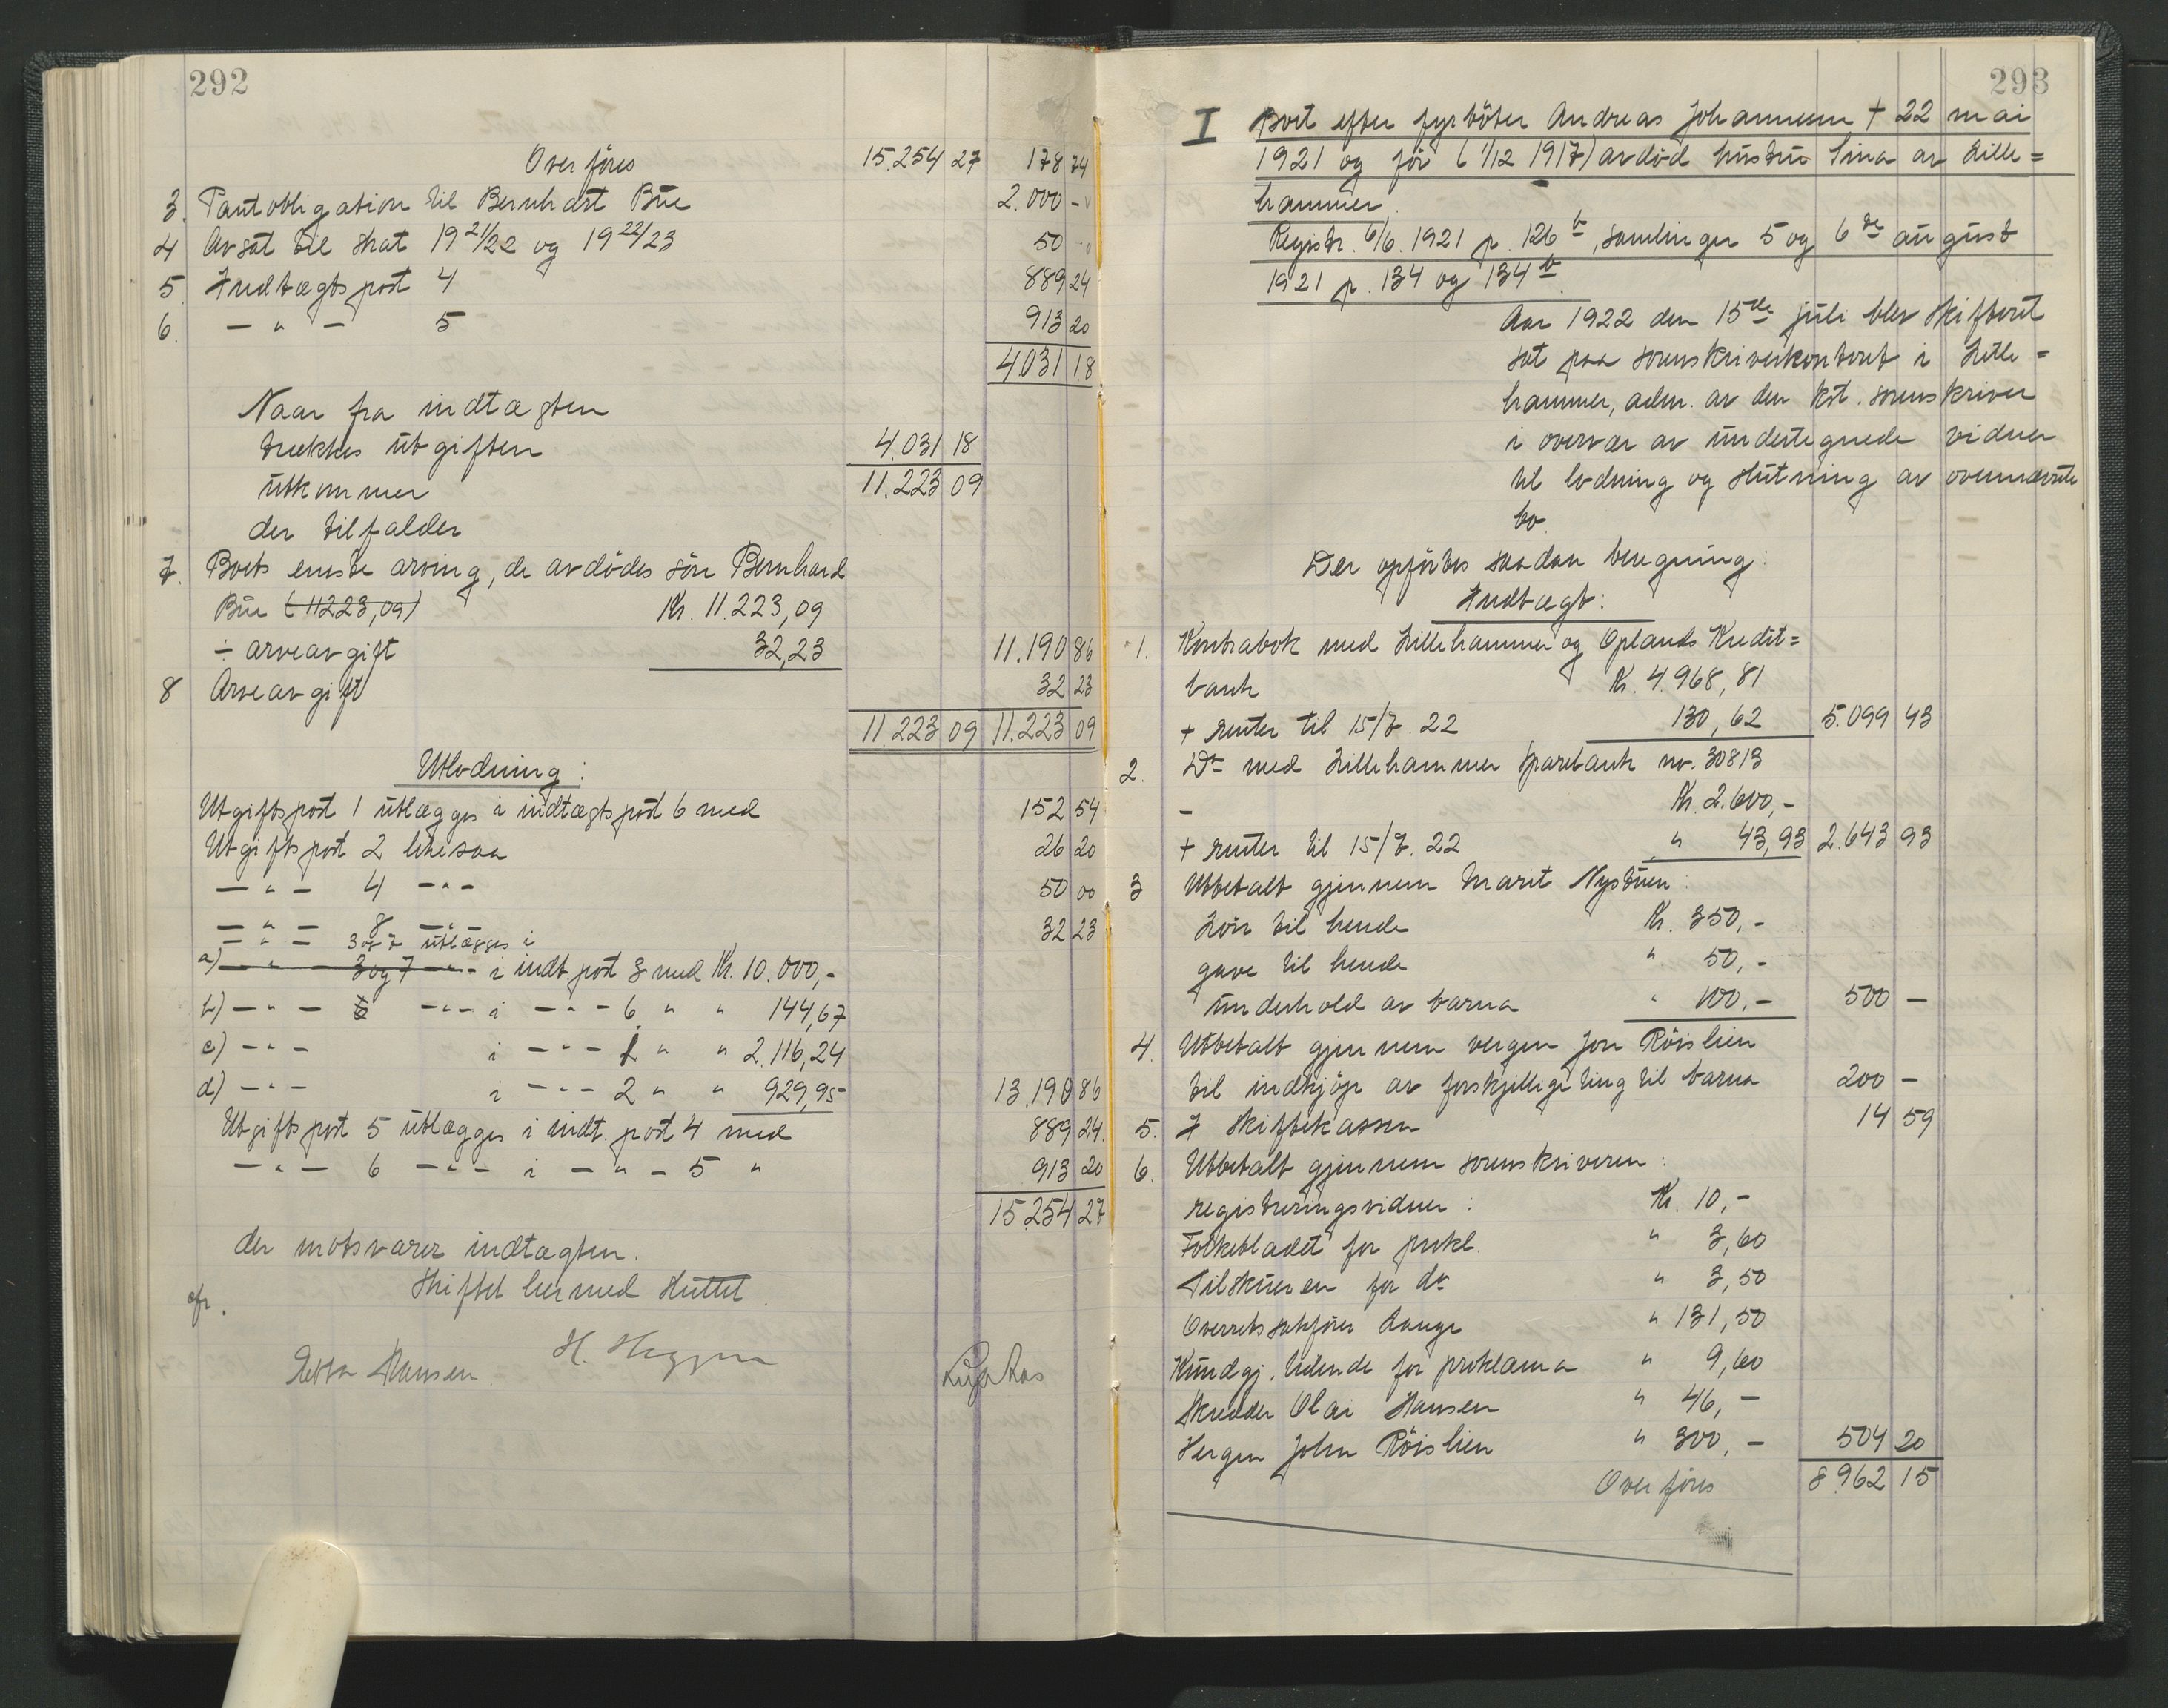 292
Overføres 15.254 27 178 74
3. Pantobligation til Bernhart Bue 2.000 -
4 Avsat til skat 19 21/22 og 19 22/23 50 -
5 Indtægtspost 4 889 24
6. — " — 5 913 20
4031 18
Naar fra indtægten
trækkes utgiften 4.031 18
utkommer 11.223 09
der tilfalder
7. Boets eneste arving, de avdødes søn Bernhard
Bue (11223,09) Kr. 11.223,09
÷ arveavgift 32,23 11.190 86
8 Arveavgift 32 23
11.223 09 11.223 09
Utlodning:
Utgiftspost 1 utlægges i indtægtspost 6 med 152 54
Utgiftspost 2 likesaa 26 20
— " — 4 — " — 50 00
— " — 8 — " — 32 23
— " — 3 og 7 utlægges i
a) — " — 3 og 7 — " — i indt. post 3 med Kr. 10.000,-
b) — " — — " — i — " — 6 " " 144,67
c) — " — i — " — 1 " " 2.116,24
d) — " — i — " — 2 " " 929,95 13.190 86
Utgiftspost 5 utlægges i indt. post 4 med 889 24
— " — 6 — " — i — " — 5 " 913 20
15254 27
der motsvarer indtægten.
Skiftet hermed sluttet.
cfr.
Hansen. H. Heggen
293
I Boet efter fyrbøter Andreas Johannesen + 22 mai
1921 og før (1/12 1917) avdød hustru Sina av Lille=
hammer.
Registr. 6/6. 1921 p. 126 b, samlinger 5 og 6te august
1921 p. 134 og 134 b.
Aar 1922 den 15de juli blev skifteret
sat paa sorenskriverkontoret i Lille=
hammer, adm. av den kst. sorenskriver
i overvær av undertegnede vidner
til lodning og slutning av ovennævnte
bo.
Der opførtes saadan beregning:
Indtægt:
1. Kontrabok med Lillehammer og Oplands Kredit=
bank Kr. 4.968,81
+ renter til 15/7. 22 130,62 5.099 43
2. Do med Lillehammer Sparebank nr. 30813
— Kr. 2.600,-
+ renter til 15/7. 22 " 43,93 2.643 93
3 Utbetalt gjennem Marit Nystuen:
Løn til hende Kr. 350,-
gave til hende " 50,-
underhold av barna " 100,- 500 —
4. Utbetalt gjennem vergen Jon Röislien
til indkjøp av forskjellige ting til barna 200 —
5. I skiftekassen 14 59
6. Utbetalt gjennem sorenskriveren:
registreringsvidner: Kr. 10,-
Folkebladet for prokl. " 3,60
Tilskueren for do " 3,50
Overretssakfører Lange " 131,50
Kundgj. tidende for proklama " 9,60
Skrædder Olai Hansen " 46,-
Vergen John Röislien " 300,- 504 20
Overføres 8.962 15